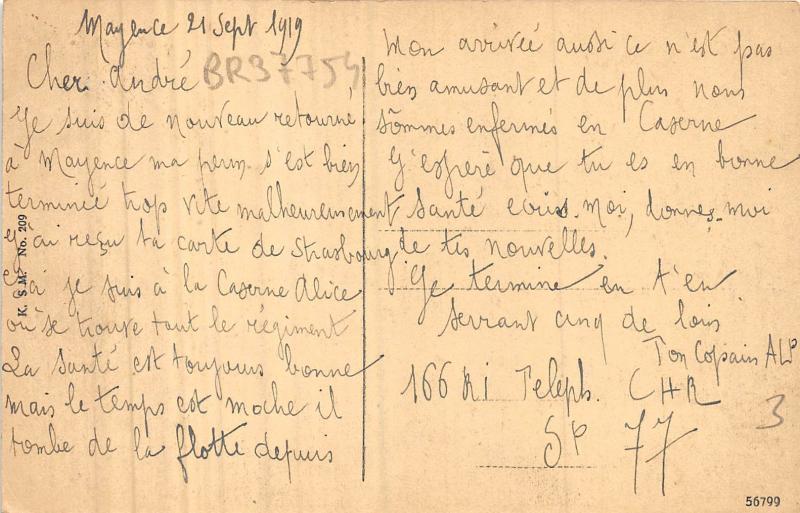 Mayence 21 Sept 1919
Cher André
BR37754
Je suis de nouveau retourné
à Mayence ma perm s'est bien
terminée trop vite malheureusement
J'ai reçu ta carte de Strasbourg
Ici je suis à la Caserne Alice
où se trouve tout le régiment
La santé est toujours bonne
mais le temps est moche il
tombe de la flotte depuis
mon arrivée aussi ce n'est pas
bien amusant et de plus nous
sommes enfermés en Caserne
J'espère que tu es en bonne
santé ecris-moi, donnes-moi
de tes nouvelles.
Je termine en t'en
serrant cinq de loin
Ton Copain ALP
166 RI Teleph. CHR
SP 77
3
K. S. M. No. 209
56799